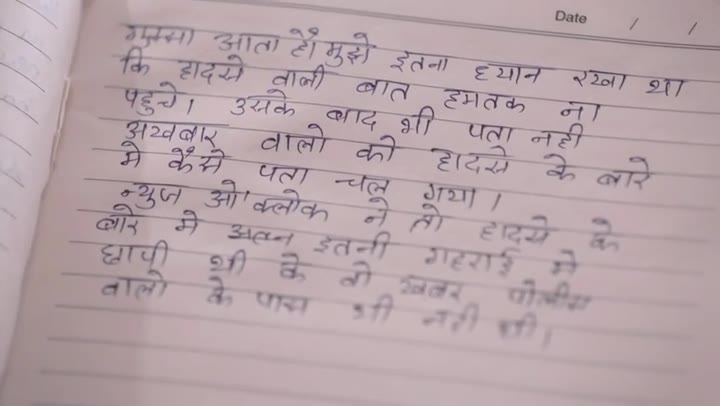 Date / /
गुस्सा आता है। मुझे इतना ध्यान रखा था
कि हादसे वाली बात हमतक ना
पहुचे। उसके बाद भी पता नही
अखबार वालो को हादसे के बारे
मे कैसे पता चल गया।
न्युज ओ'क्लोक ने तो हादसे के
बारे मे इतनी गहराई से
छापी थी के वो खबर पोलीस
वालो के पास भी नही थी।